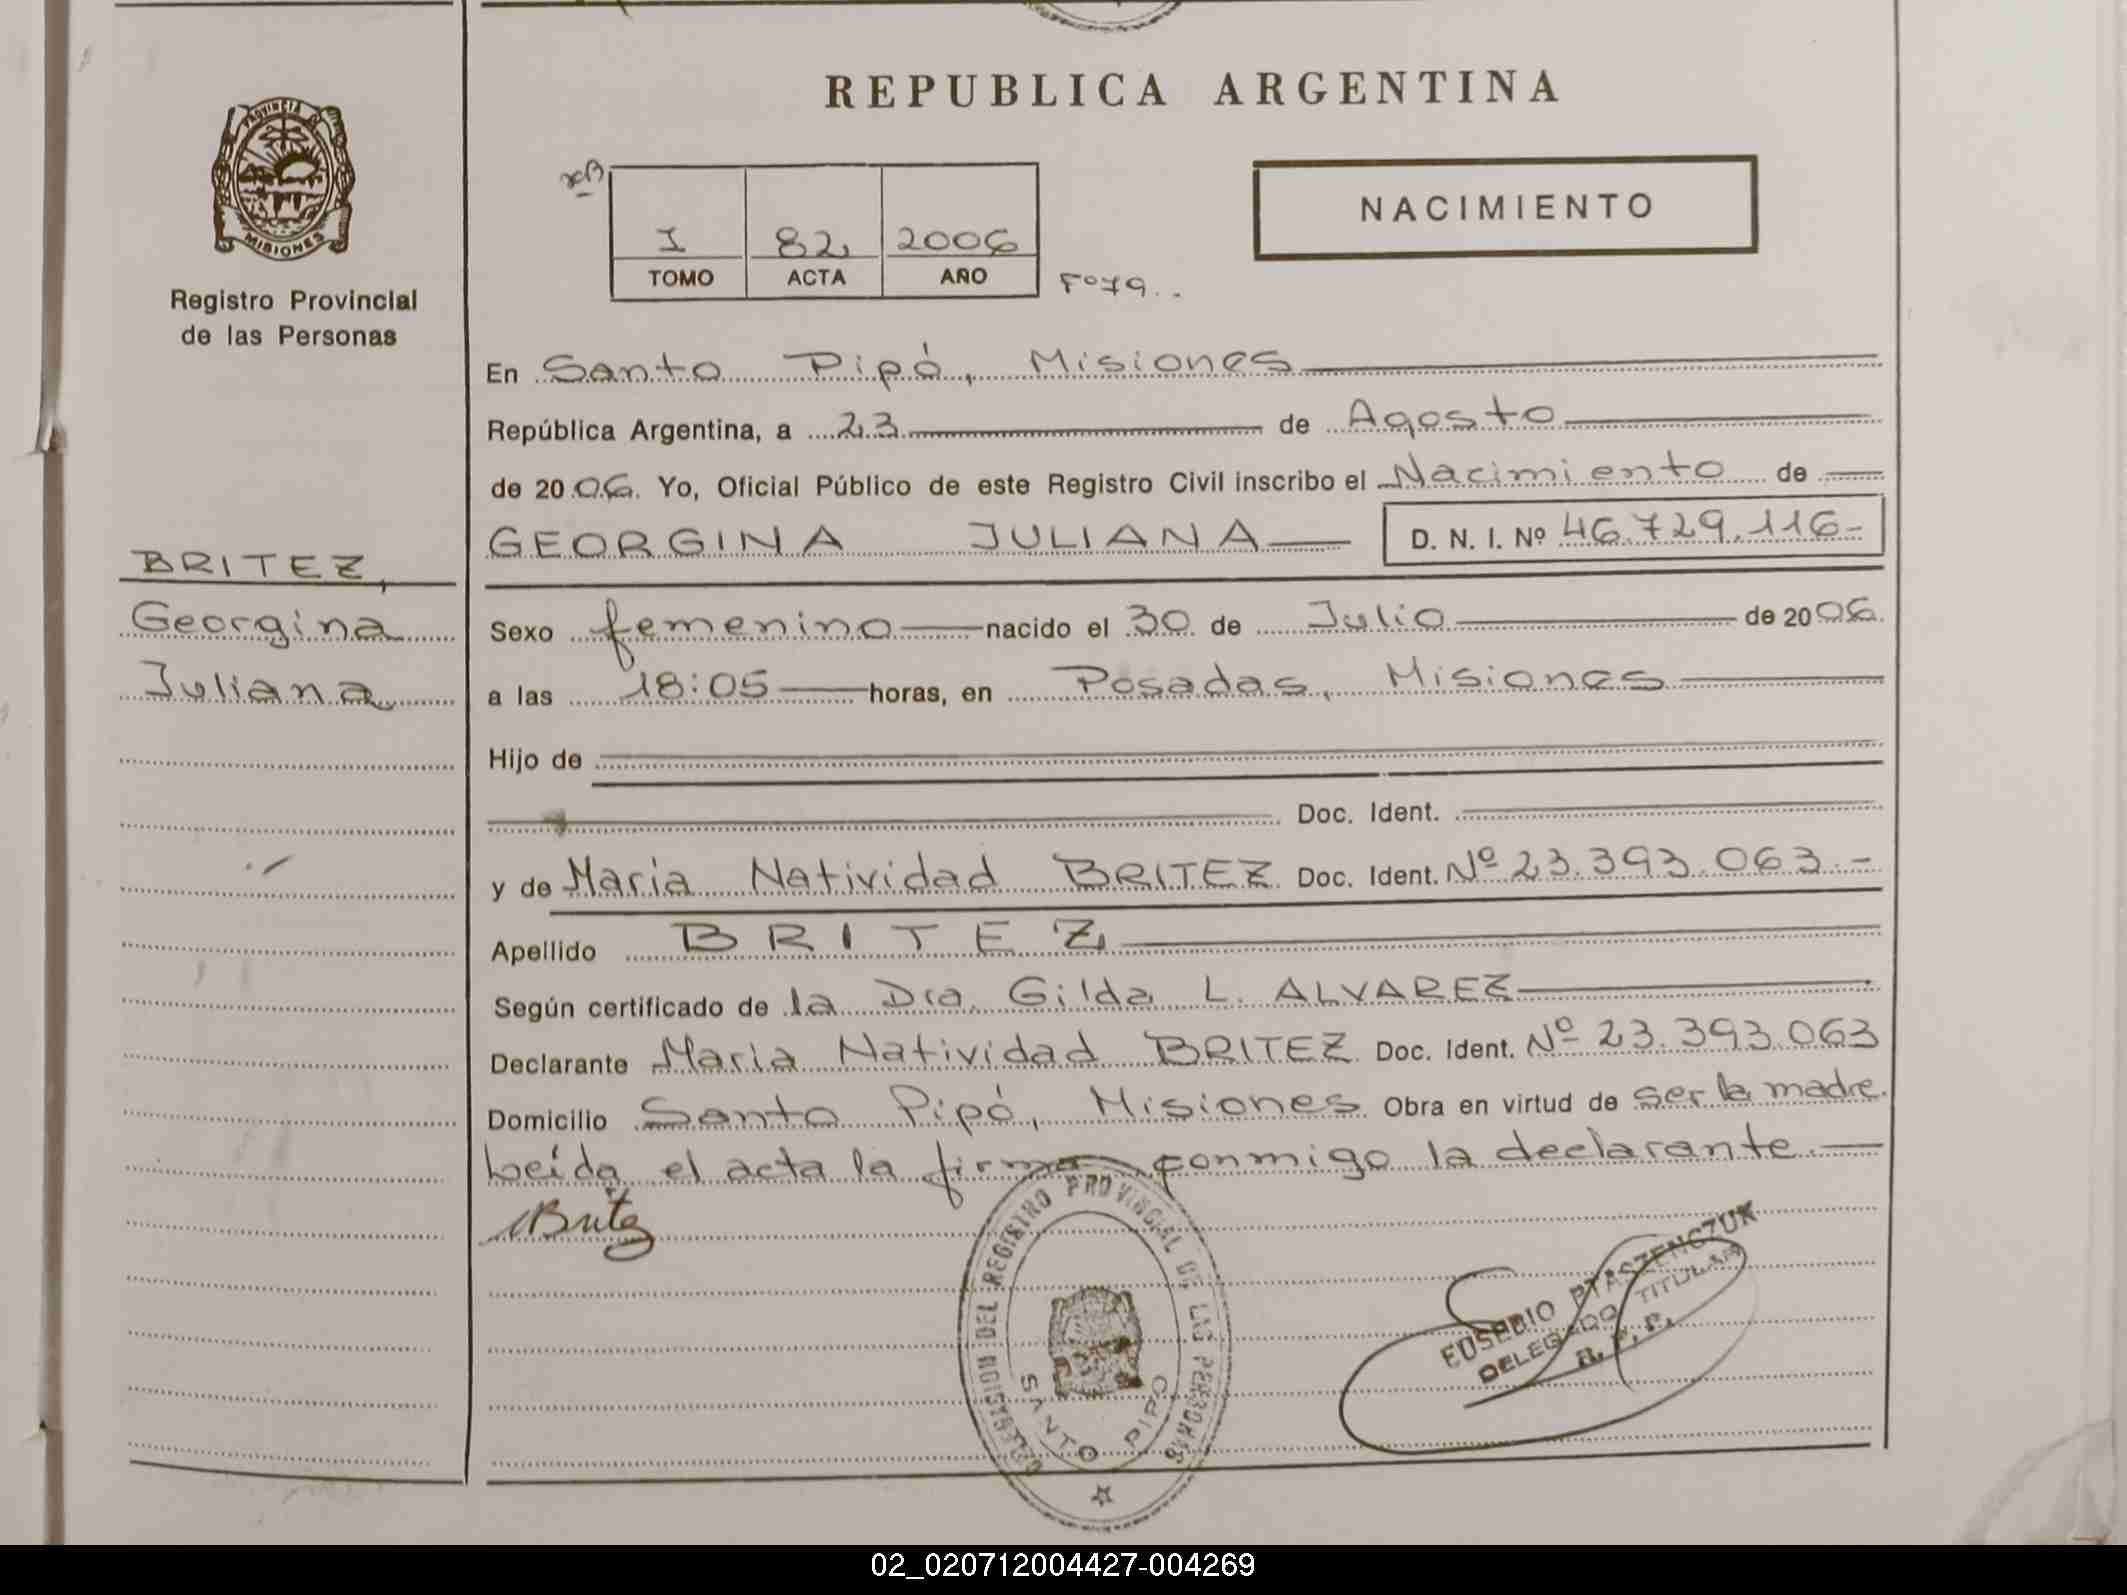 REPUBLICA ARGENTINA
PROVINCIA DE
MISIONES
Registro Provincial
de las Personas
NACIMIENTO
I 82 2006
TOMO ACTA AÑO
Fº 79..
En Santo Pipó, Misiones
República Argentina, a 23 de Agosto
de 2006. Yo, Oficial Público de este Registro Civil inscribo el Nacimiento de
GEORGINA JULIANA D. N. I. Nº 46.729.116-
BRITEZ,
Georgina
Juliana
Sexo femenino nacido el 30 de Julio de 2006.
a las 18:05 horas, en Posadas, Misiones
Hijo de
Doc. Ident.
y de Maria Natividad BRITEZ Doc. Ident. Nº 23.393.063.-
Apellido BRITEZ
Según certificado de la Dra. Gilda L. ALVAREZ
Declarante Maria Natividad BRITEZ Doc. Ident. Nº 23.393.063
Domicilio Santo Pipó, Misiones Obra en virtud de ser la madre.
Leída el acta la firma conmigo la declarante.
Britez
REGISTRO PROVINCIAL DE LAS PERSONAS
SANTO PIPO
EUSEBIO PTASZENCZUK
DELEGADO TITULAR
R. P. P.
02_020712004427-004269